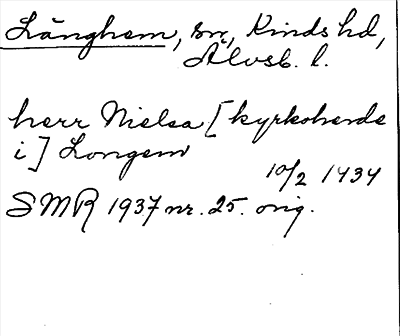 Långhem, sn, Kinds hd,
Älvsb. l.
herr Nielsa [kyrkoherde
i] Longem
10/2 1434
SMR 1937 nr. 25. orig.